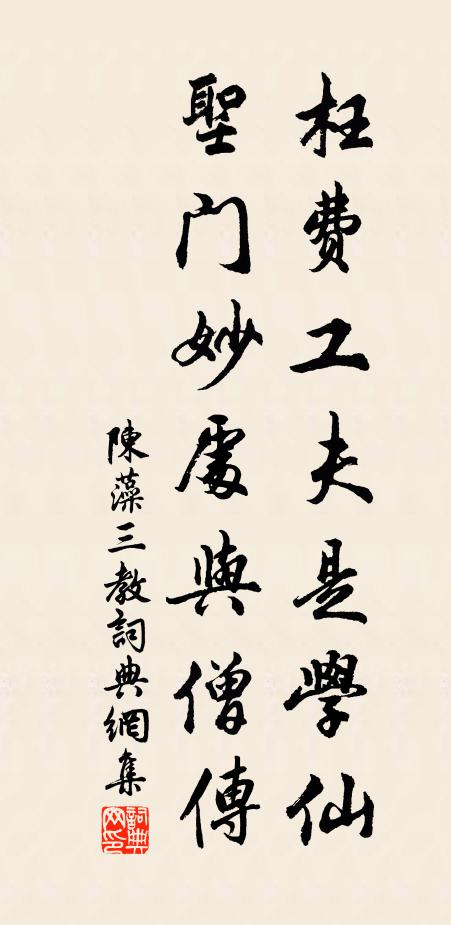 枉費工夫是學仙
聖门妙處與僧傳
陳藻三教詞典網集
詞典网印